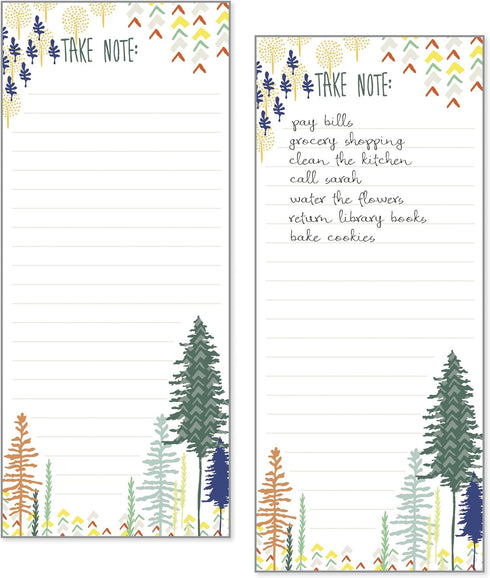 TAKE NOTE:
TAKE NOTE:
pay bills
grocery shopping
clean the kitchen
call sarah
water the flowers
return library books
bake cookies